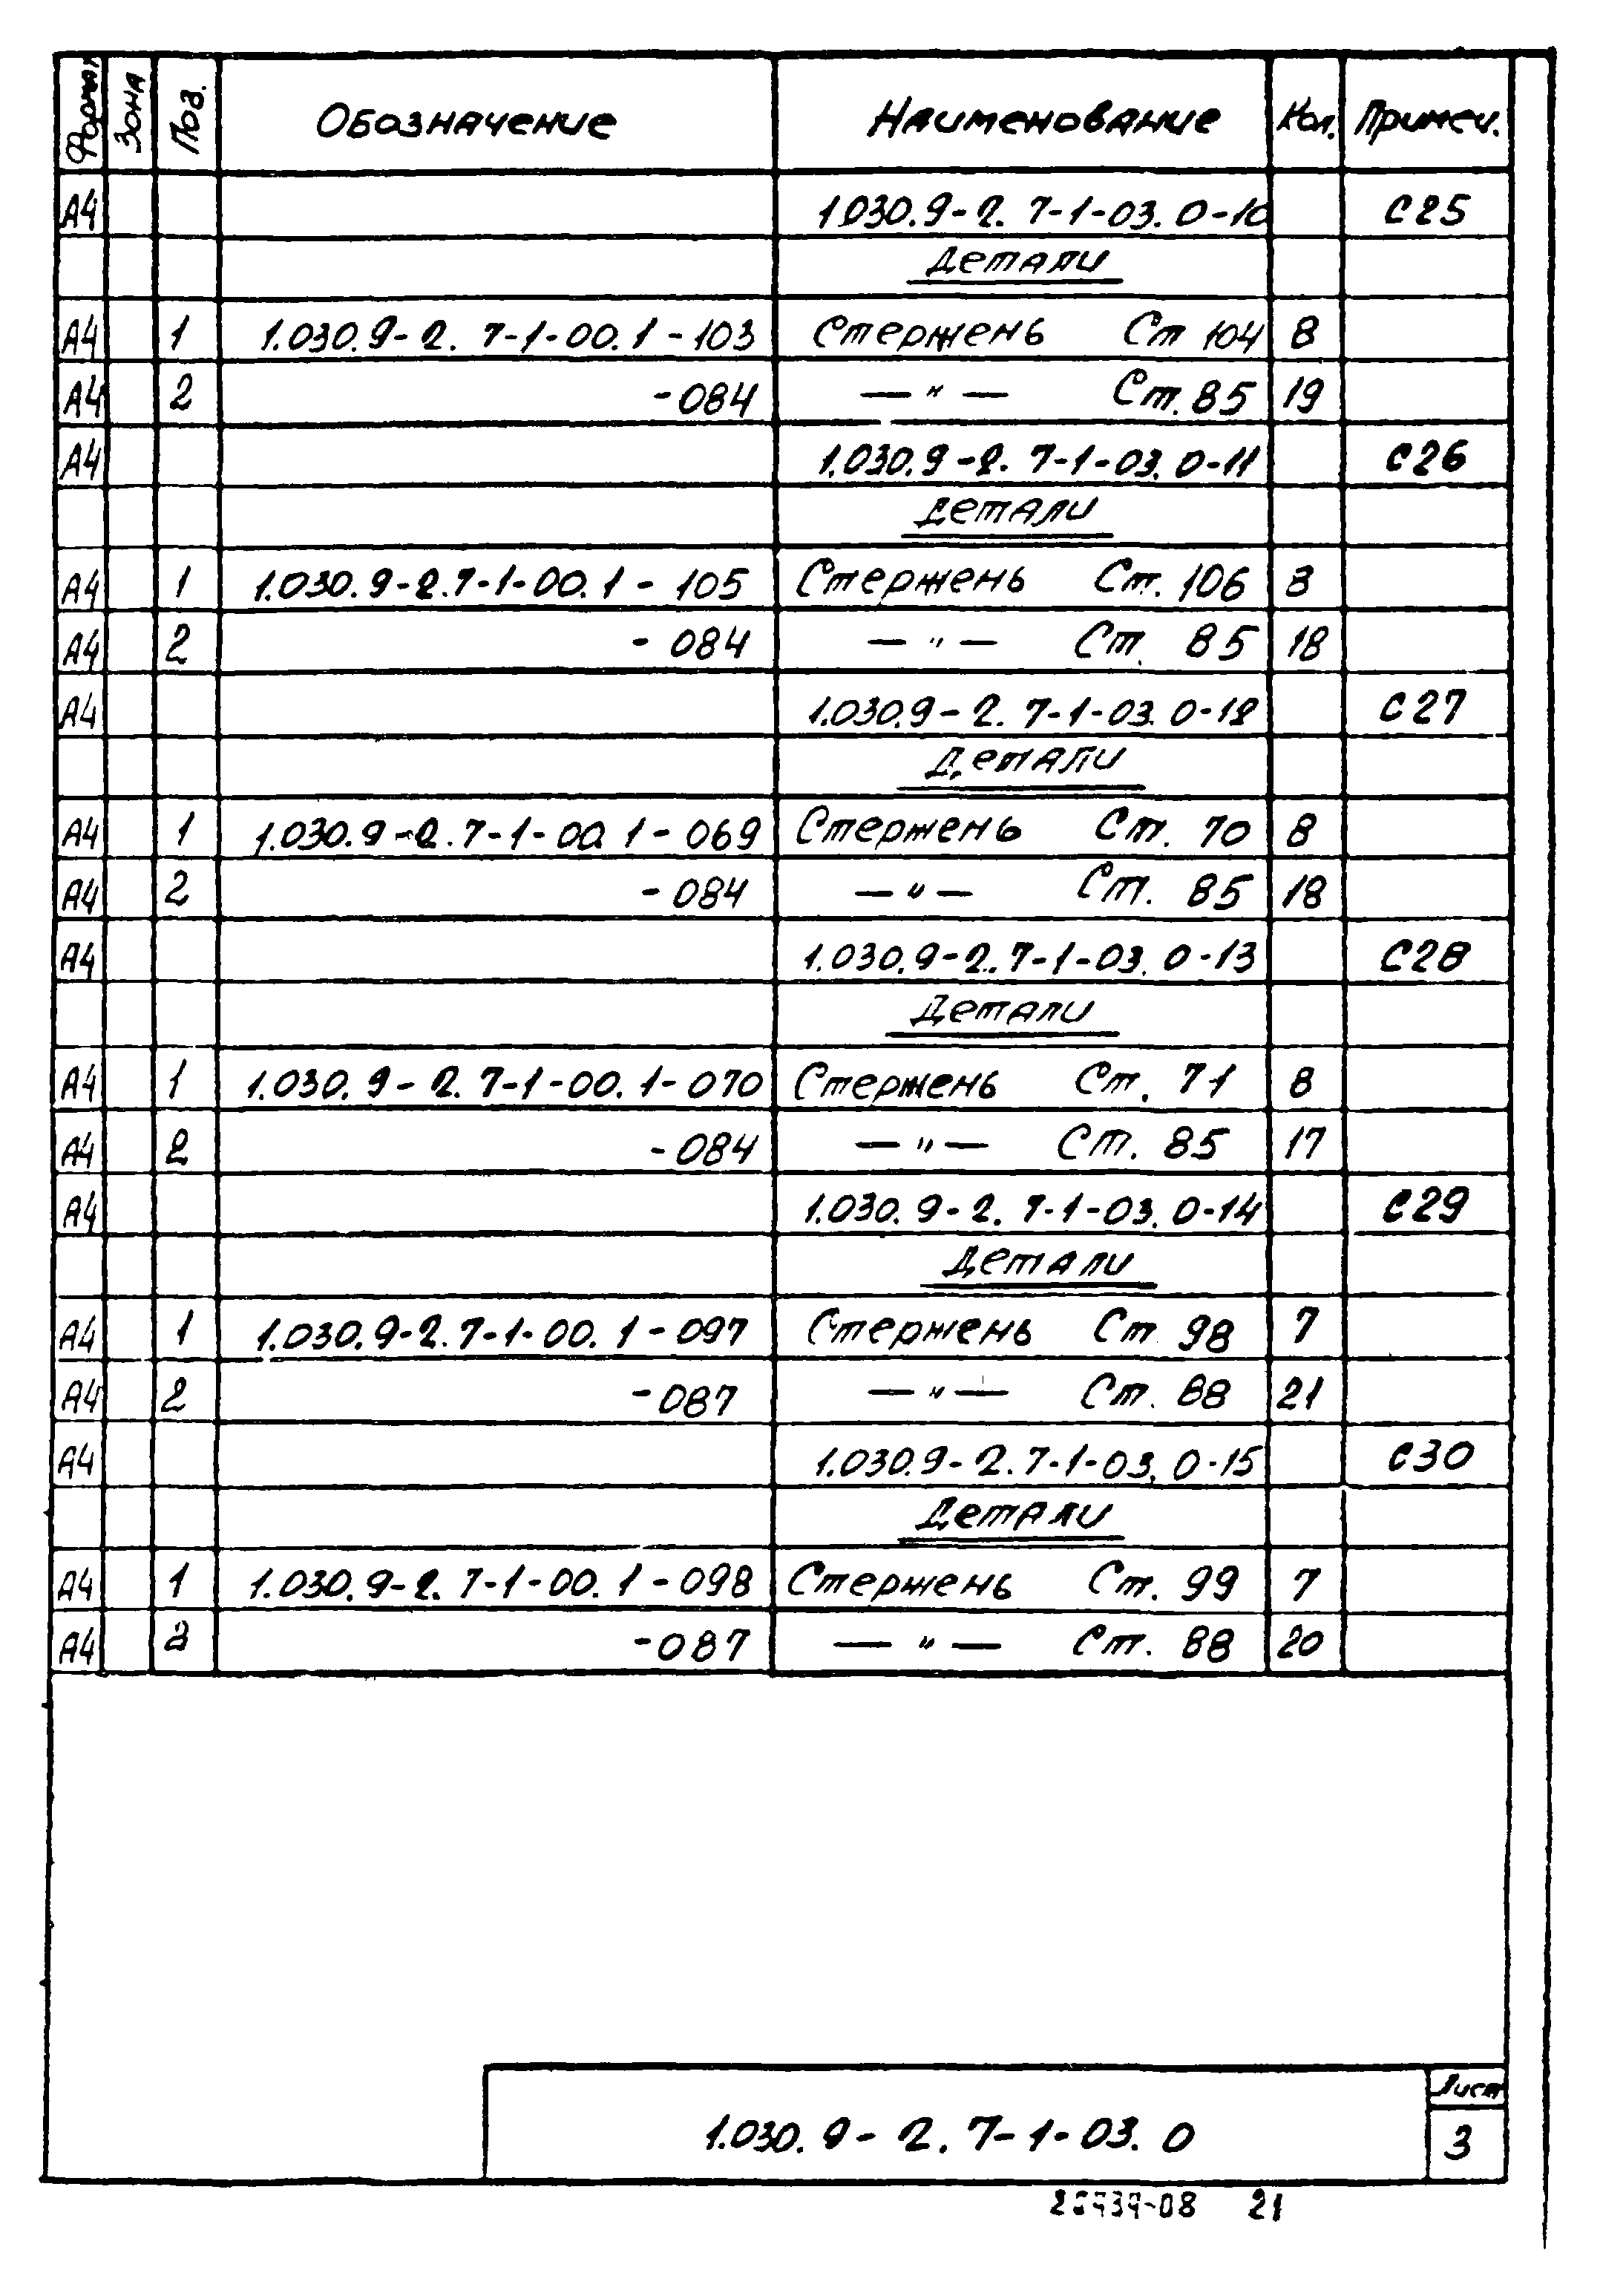 Формат Зона Поз. Обозначение Наименование Кол. Примеч.
А4 1.030.9-2.7-1-03.0-10 С25
Детали
А4 1 1.030.9-2.7-1-00.1-103 Стержень Ст 104 8
А4 2 -084 — " — Ст. 85 19
А4 1.030.9-2.7-1-03.0-11 С26
Детали
А4 1 1.030.9-2.7-1-00.1-105 Стержень Ст. 106 8
А4 2 -084 — " — Ст. 85 18
А4 1.030.9-2.7-1-03.0-12 С27
Детали
А4 1 1.030.9-2.7-1-00.1-069 Стержень Ст. 70 8
А4 2 -084 — " — Ст. 85 18
А4 1.030.9-2.7-1-03.0-13 С28
Детали
А4 1 1.030.9-2.7-1-00.1-070 Стержень Ст. 71 8
А4 2 -084 — " — Ст. 85 17
А4 1.030.9-2.7-1-03.0-14 С29
Детали
А4 1 1.030.9-2.7-1-00.1-097 Стержень Ст 98 7
А4 2 -087 — " — Ст. 88 21
А4 1.030.9-2.7-1-03.0-15 С30
Детали
А4 1 1.030.9-2.7-1-00.1-098 Стержень Ст. 99 7
А4 2 -087 — " — Ст. 88 20
Лист
1.030.9-2.7-1-03.0 3
21